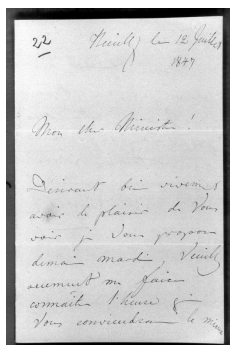 22
Neuilly le 12 Juillet
1847
Mon cher Ministre!
Désirant bien vivement
avoir le plaisir de Vous
voir je Vous propose
demain mardi. Veuillez
seulement me faire
connaître l'heure qui
Vous conviendra le mieux